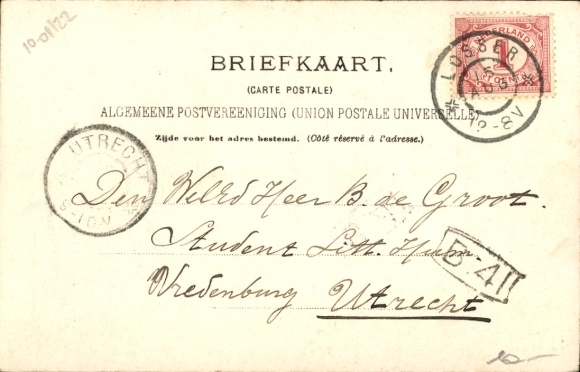 10-01/22
NEDERLAND
1
CENT
LOSSER
12-8V
BRIEFKAART.
(CARTE POSTALE)
ALGEMEENE POSTVEREENIGING (UNION POSTALE UNIVERSELLE)
Zijde voor het adres bestemd. (Côté réservé à l'adresse.)
UTRECHT
9-10N
Den WelEd Heer B. de Groot.
Student Litt. Hum.
B 41
Vredenburg Utrecht